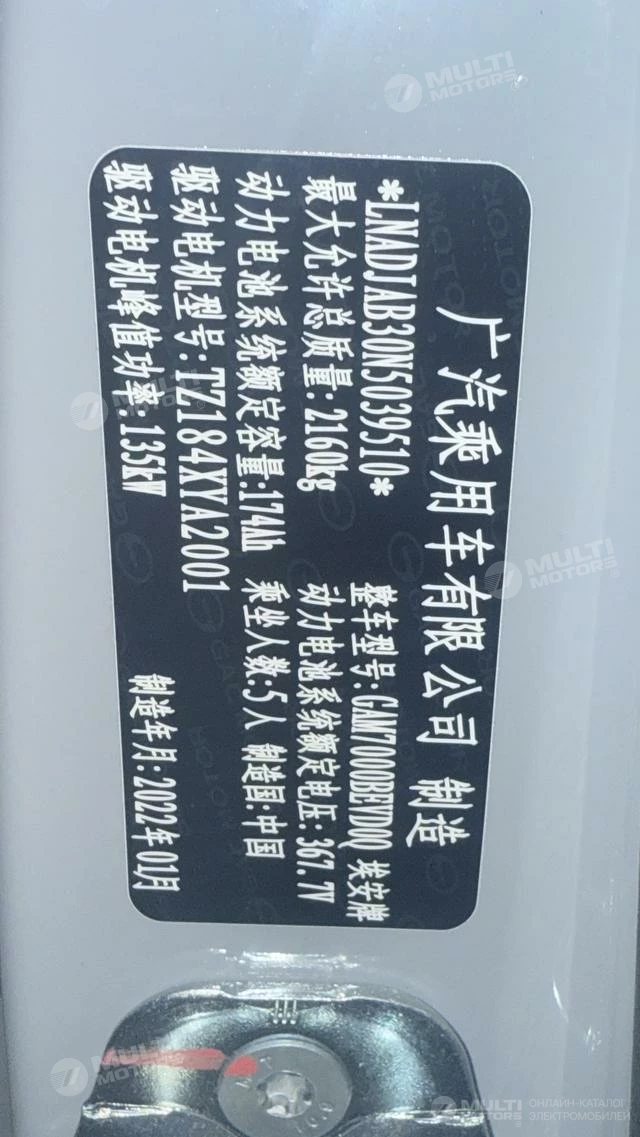 广汽乘用车有限公司 制造
*LNADJAB30N5039510* 整车型号:GAM7000BEVD0Q 埃安牌
最大允许总质量:2160kg 动力电池系统额定电压:367.7V
动力电池系统额定容量:174Ah 乘坐人数:5人 制造国:中国
驱动电机型号:TZ184XYA2001
驱动电机峰值功率:135kW 制造年月:2022年01月
MULTI MOTORS
MULTI MOTORS
MULTI MOTORS
MULTI MOTORS
MULTI MOTORS ОНЛАЙН-КАТАЛОГ ЭЛЕКТРОМОБИЛЕЙ